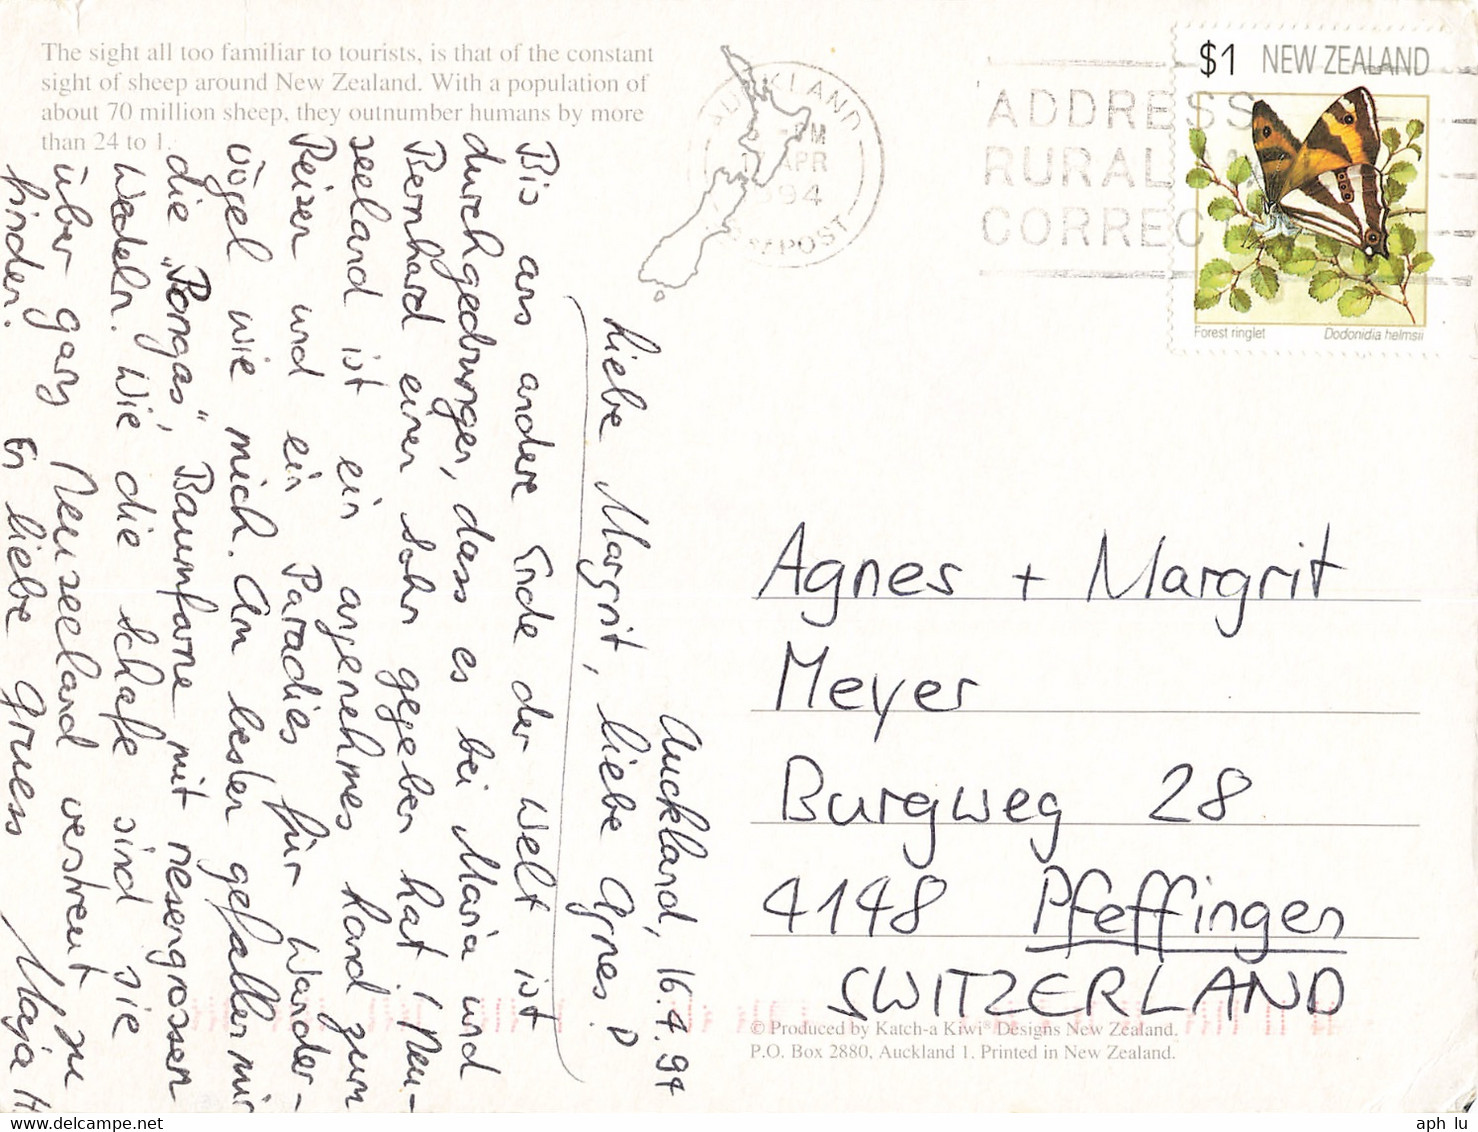 The sight all too familiar to tourists, is that of the constant
sight of sheep around New Zealand. With a population of
about 70 million sheep, they outnumber humans by more
than 24 to 1.
AUCKLAND
APR
1994
POST
ADDRESS
RURAL
CORREC
$1 NEW ZEALAND
Forest ringlet Dodonidia helmsii
Auckland, 16.4.94
Liebe Margrit, liebe Agnes!
Bis ans andere Ende der Welt ist
durchgedrungen, dass es bei Maria und
Bernhard einen Sohn gegeben hat! Neu-
seeland ist ein angenehmes Land zum
Reisen und ein Paradies für Wander-
vögel wie mich. Am besten gefallen mir
die „Pongas", Baumfarne mit riesengrossen
Wedeln. Wie die Schafe sind sie
über ganz Neuseeland verstreut zu
finden. En liebe Gruess Maja H
Agnes + Margrit
Meyer
Burgweg 28
4148 Pfeffingen
SWITZERLAND
© Produced by Katch-a Kiwi® Designs New Zealand.
P.O. Box 2880, Auckland 1. Printed in New Zealand.
aph lu